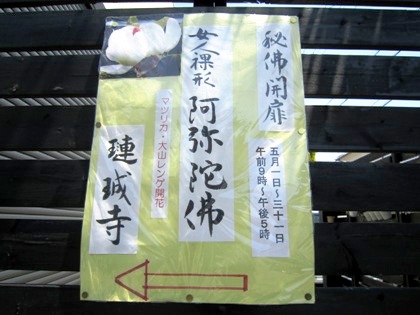 秘佛開扉
五月一日～三十一日
午前9時～午後5時
女人裸形 阿弥陀佛
マツリカ・大山レンゲ開花
璉城寺